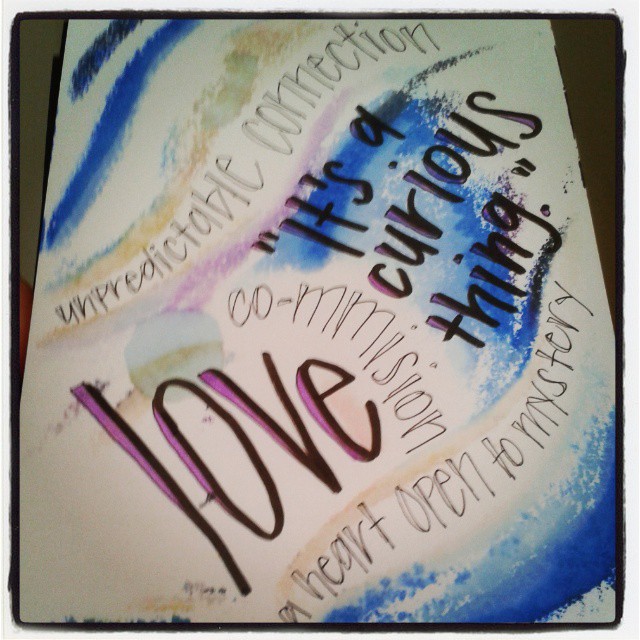 unpredictable connection
"It's a
curious
thing."
co-mmision
love
a heart open to mystery